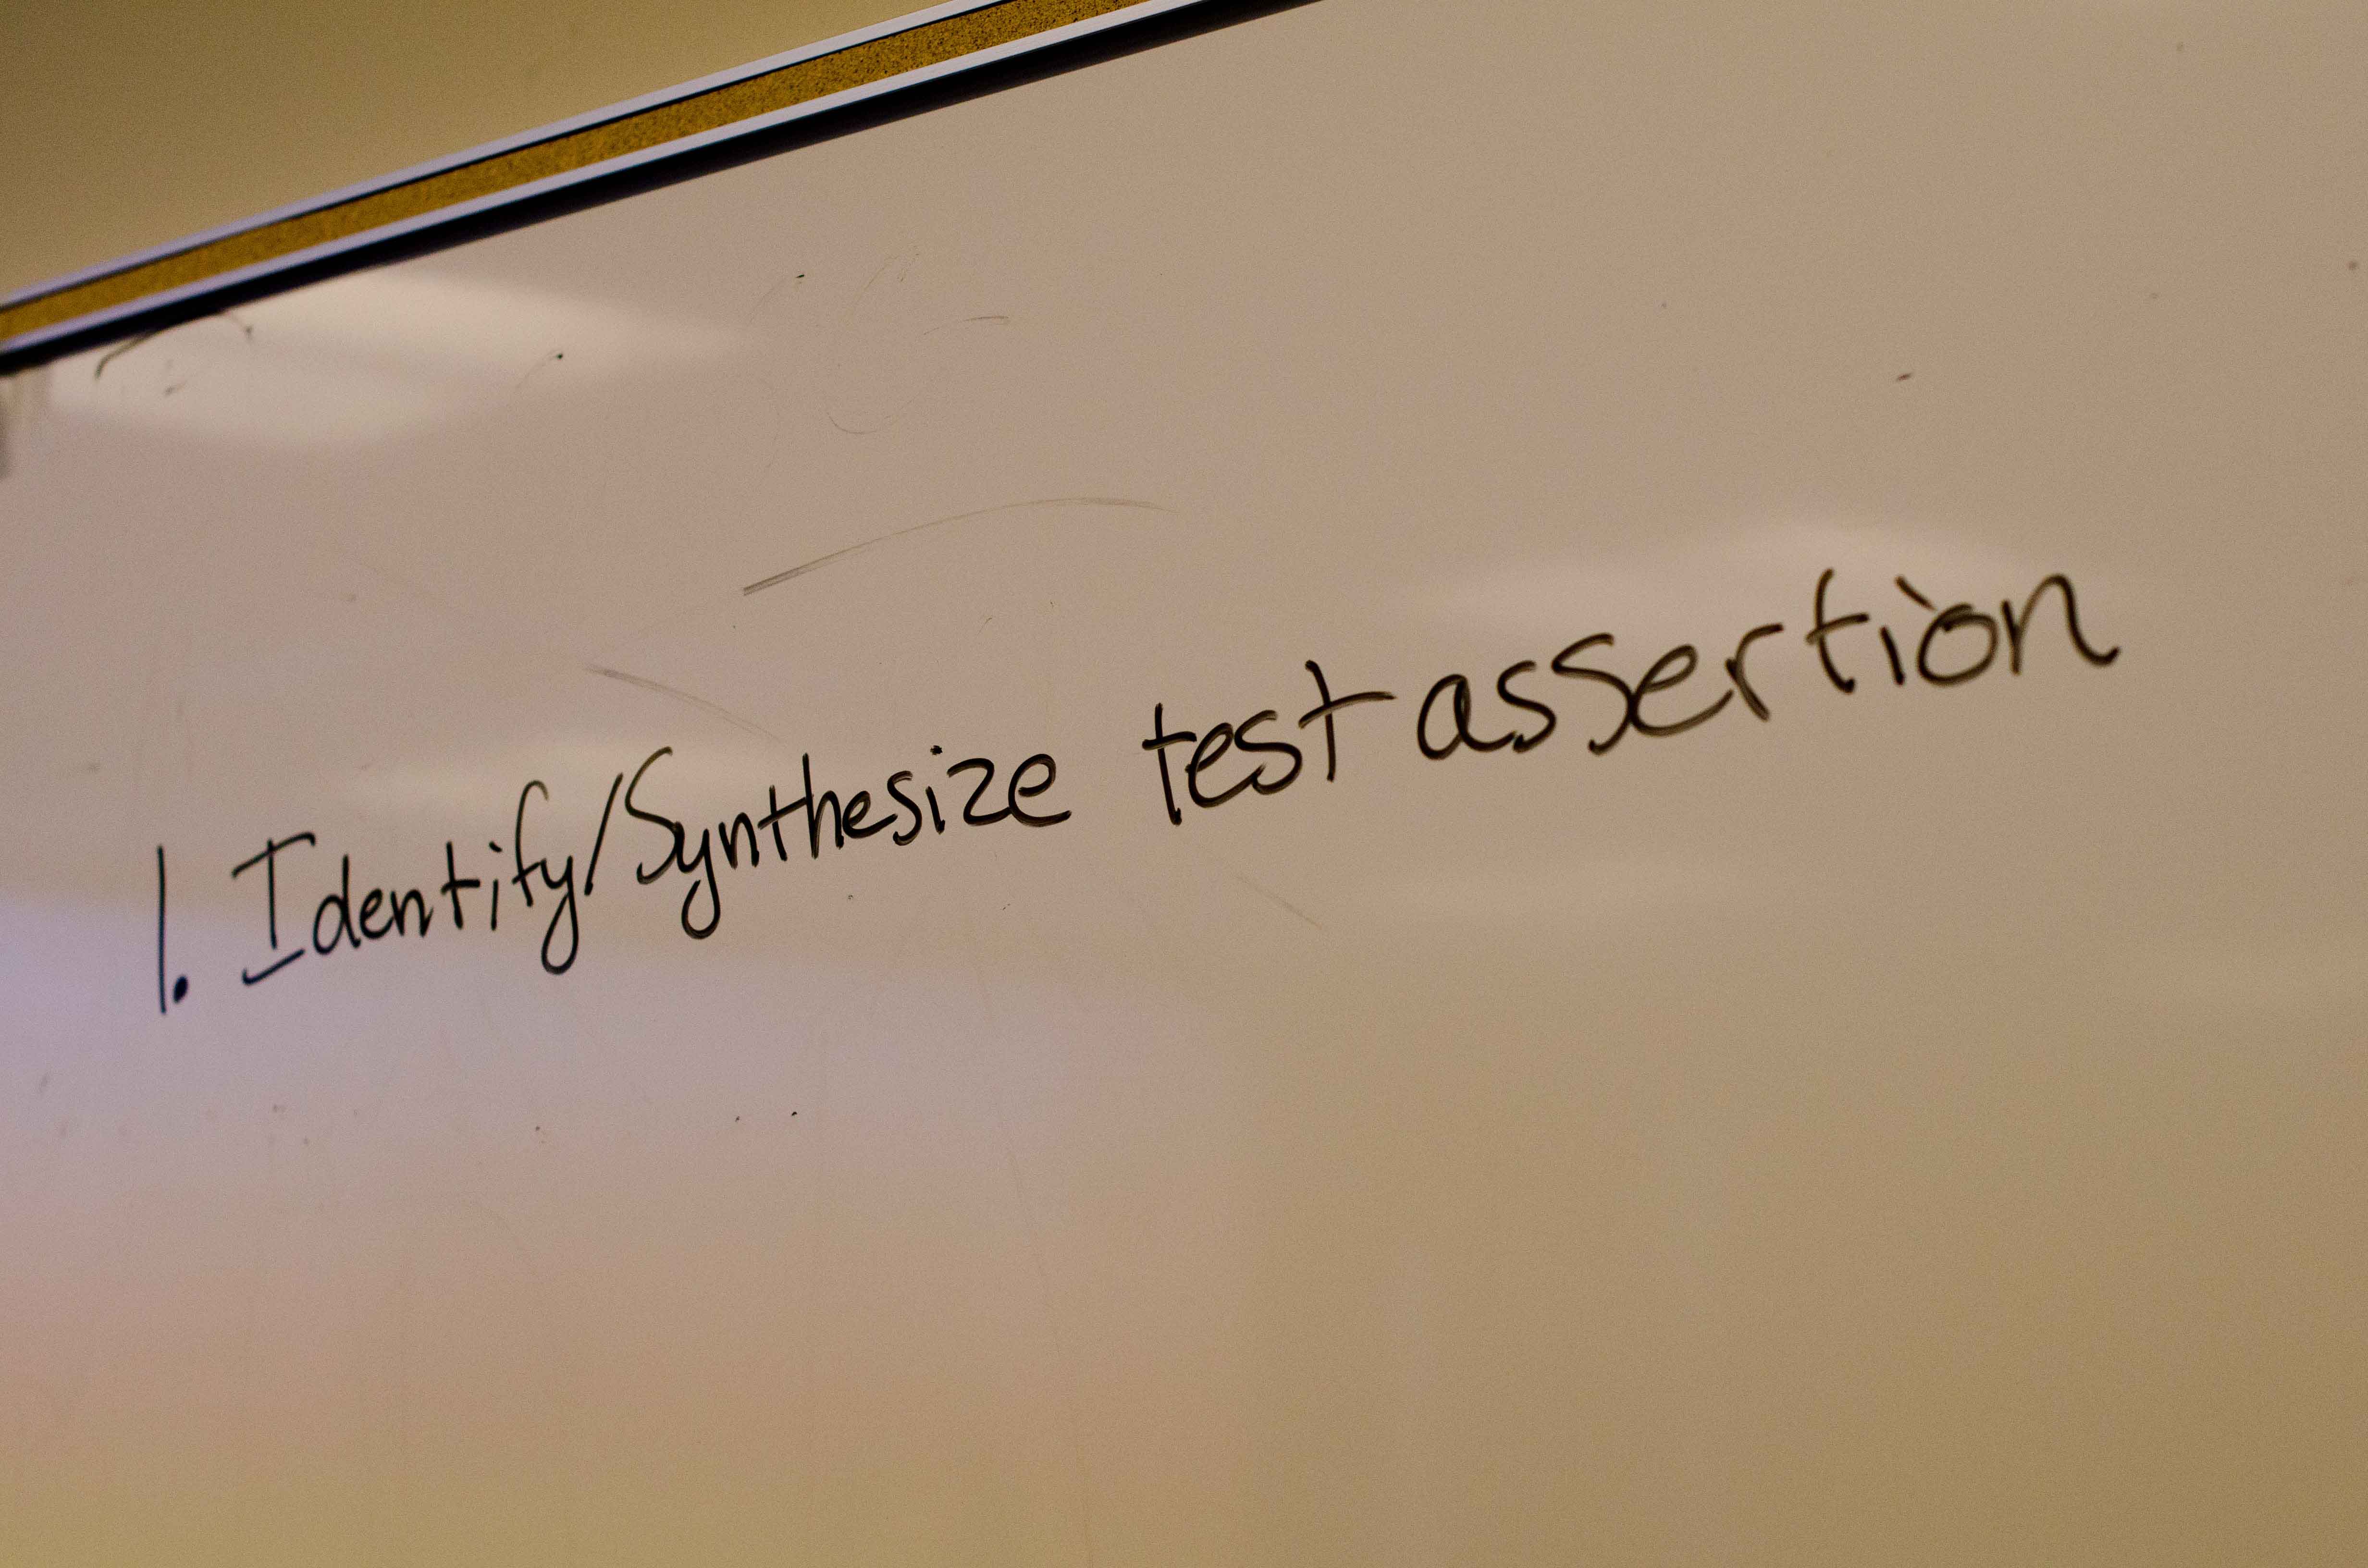 1. Identify/Synthesize test assertion